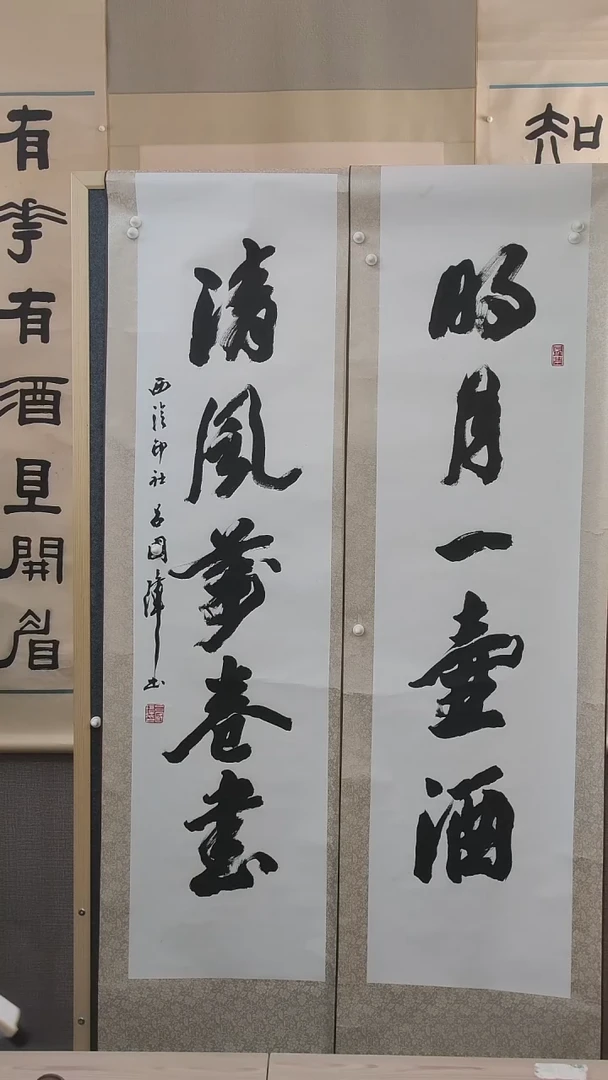 知
明月一壺酒
清風萬卷書
西泠印社 呂國璋 书
有花有酒且開眉